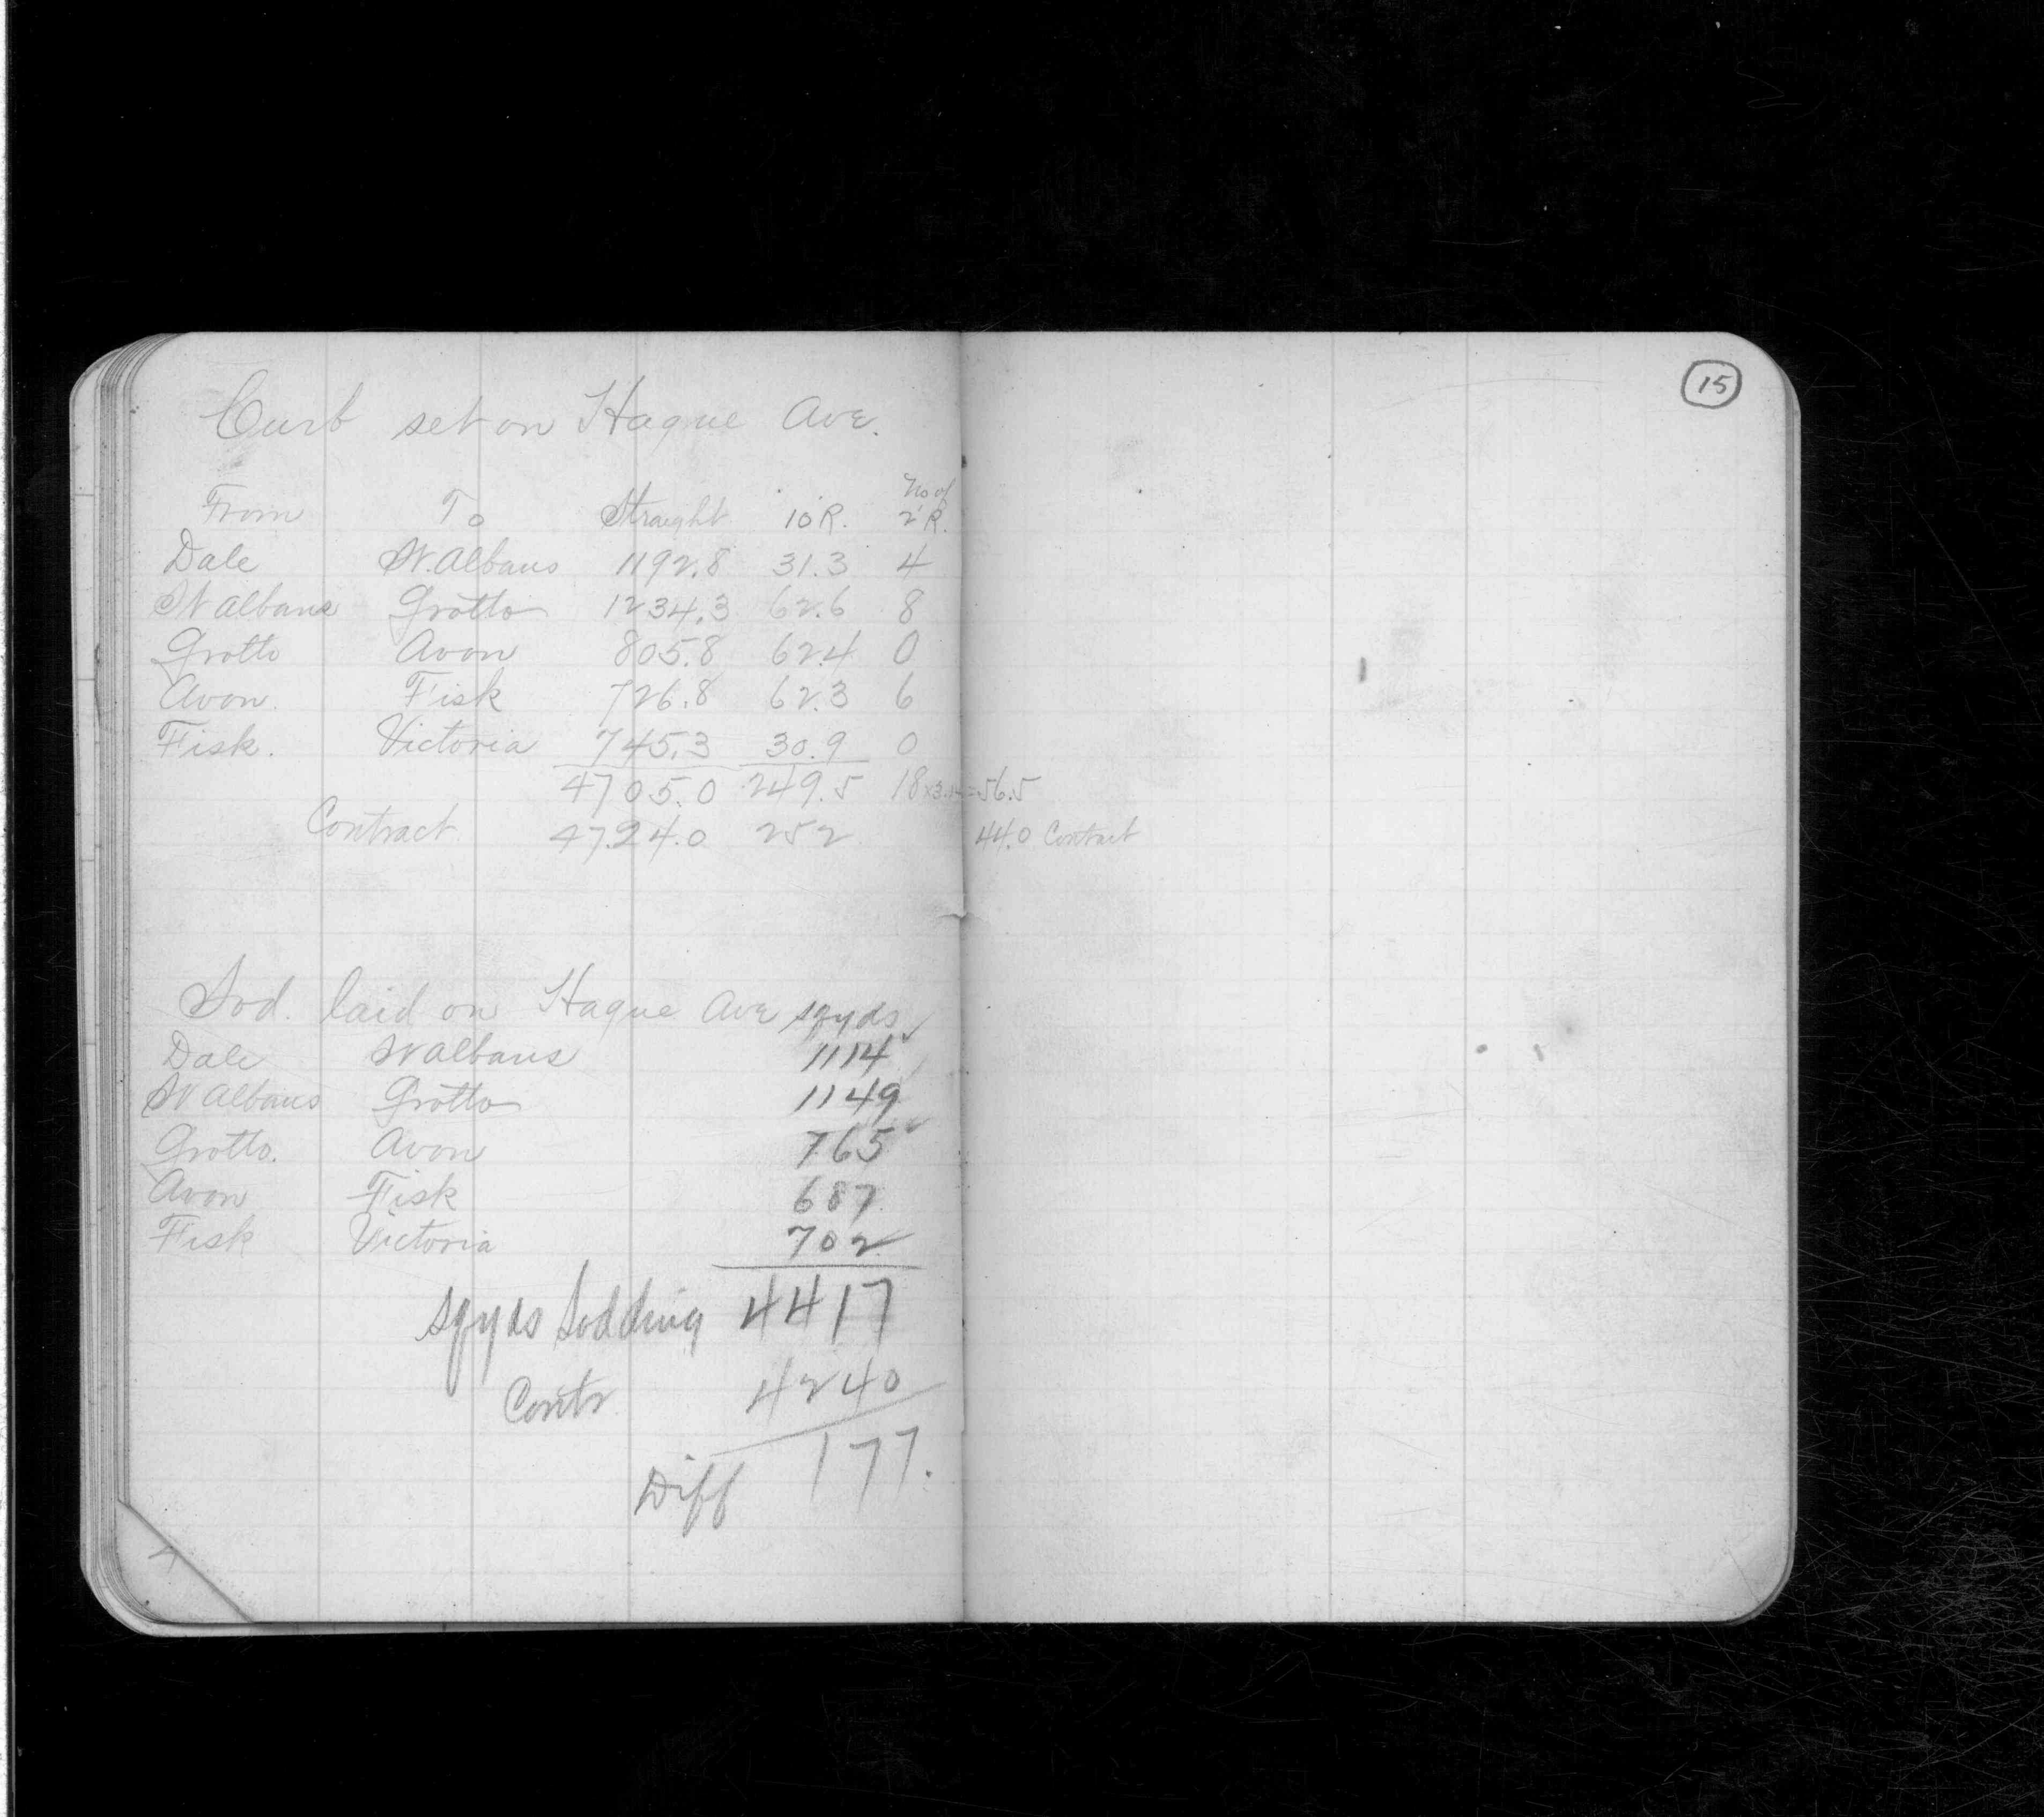 15
Curb set on Hague Ave.
From To Straight 10R. No of 2'R.
Dale St. Albans 1192.8 31.3 4
St Albans Grotto 1234.3 62.6 8
Grotto Avon 805.8 62.4 0
Avon. Fisk 726.8 62.3 6
Fisk. Victoria 745.3 30.9 0
4705.0 249.5 18 x 3.14 = 56.5
Contract 4724.0 252 44.0 Contract
Sod. laid on Hague Ave sqyds
Dale St Albans 1114
St Albans Grotto 1149
Grotto. Avon 765
Avon Fisk 687
Fisk Victoria 702
sqyds Sodding 4417
Contr 4240
Diff 177.